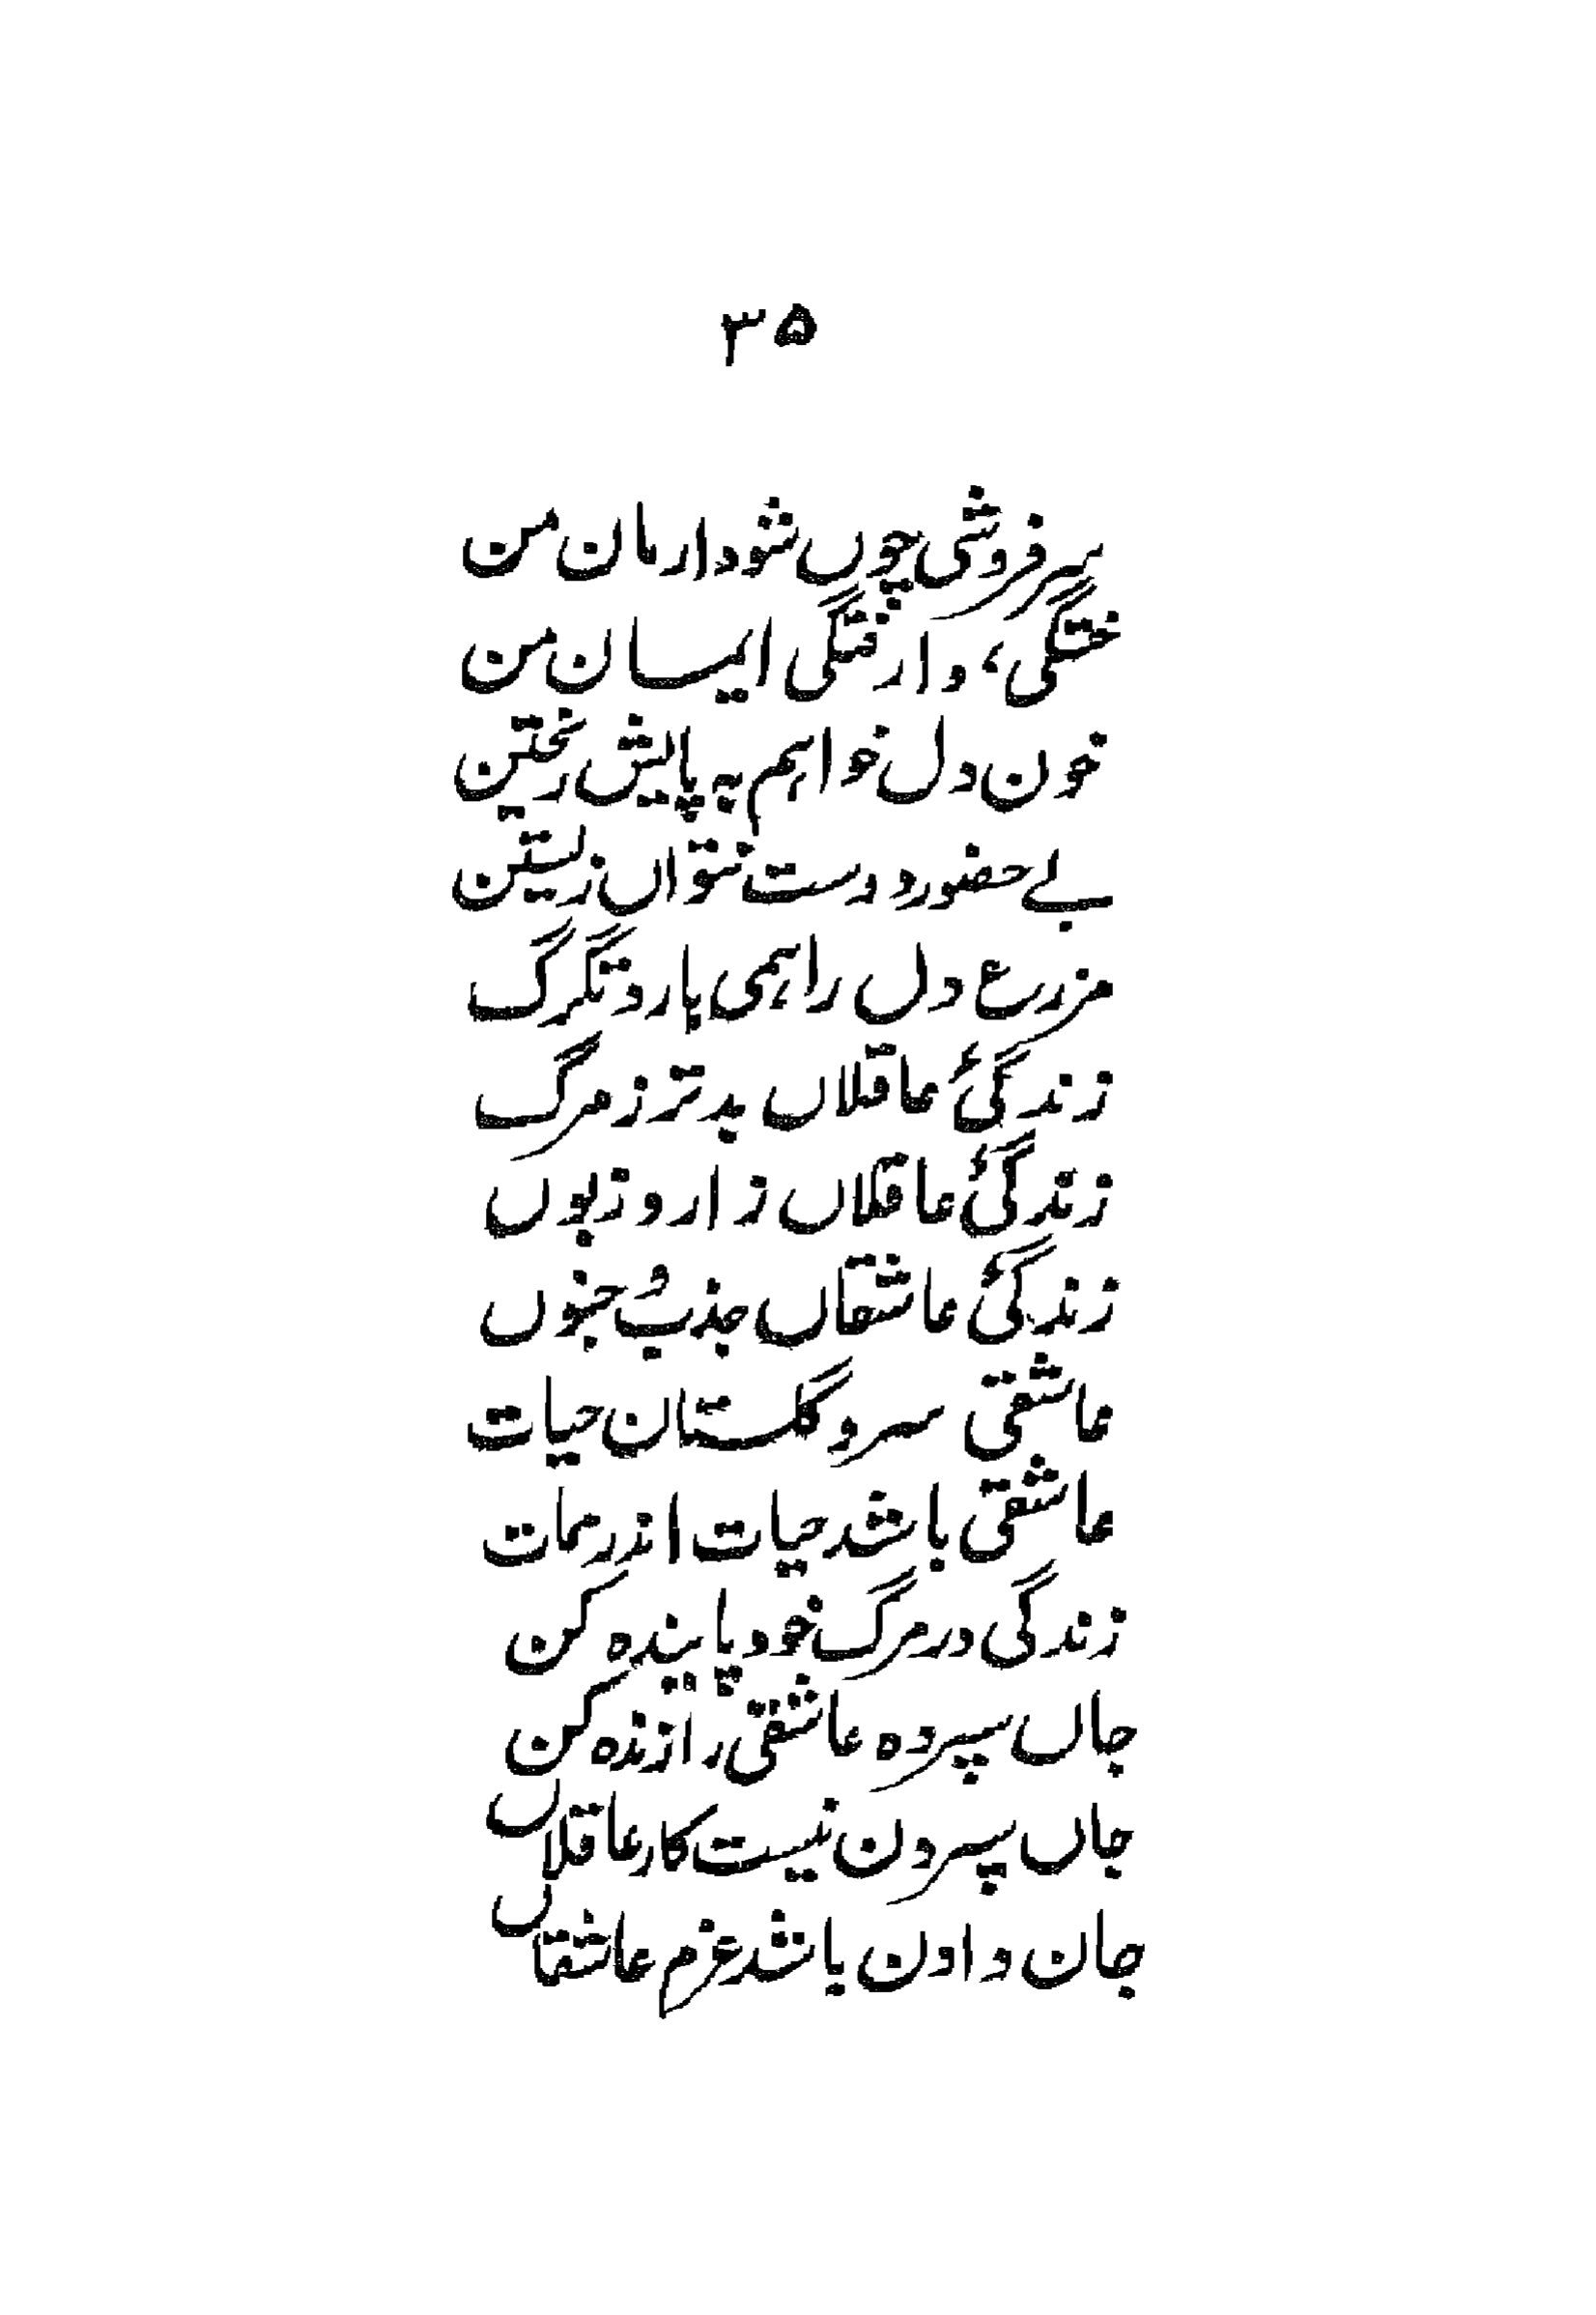 ۳۵
سرفروشی چوں شود ارمان من
خستگی، وارفتگی ایمان من
خون دل خواہم بہ پایش ریختن
بے حضور دوست نتواں زیستن
مزرع دل را ہمی بارد تگرگ
زندگیٔ عاقلاں بدتر ز مرگ
زندگیٔ عاقلاں زار و زبوں
زندگیٔ عاشقاں جذبُ جنوں
عاشقی سرو گلستان حیات
عاشقی باشد حیات اندر ممات
زندگی در مرگ خود پایندہ کن
جاں سپردہ عاشقی را زندہ کن
جاں سپردن نیست کار عاقلاں
جان دادن باشد عزم عاشقاں